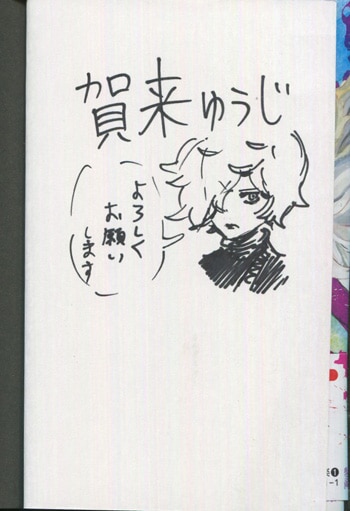 賀来ゆうじ
よろしく
お願い
します